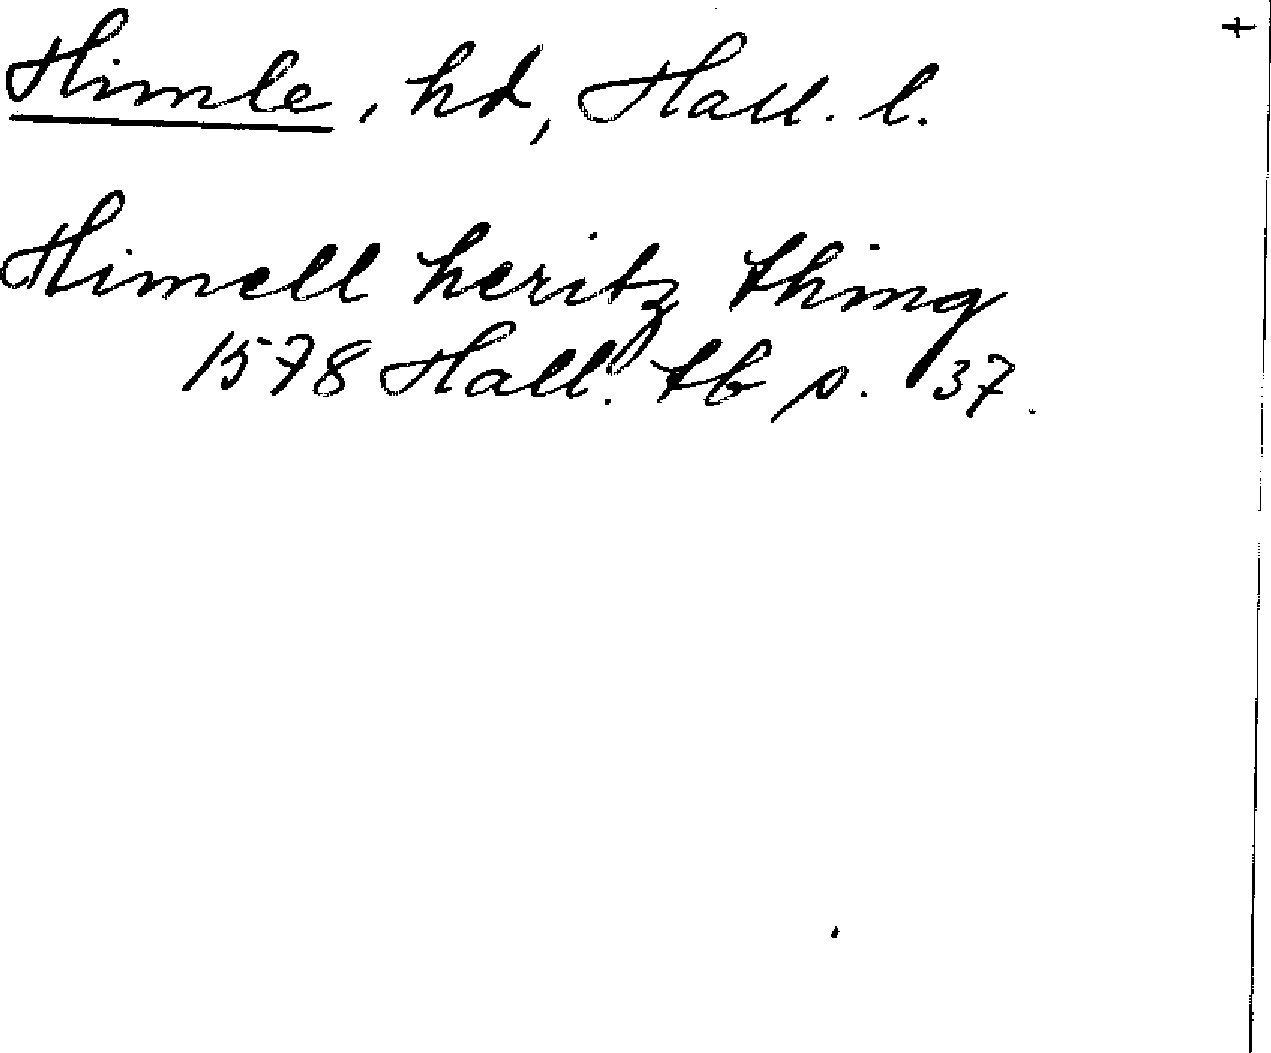 Himle, hd, Hall. l.
Himell heritz thing
1578 Hall. tb s. 37.